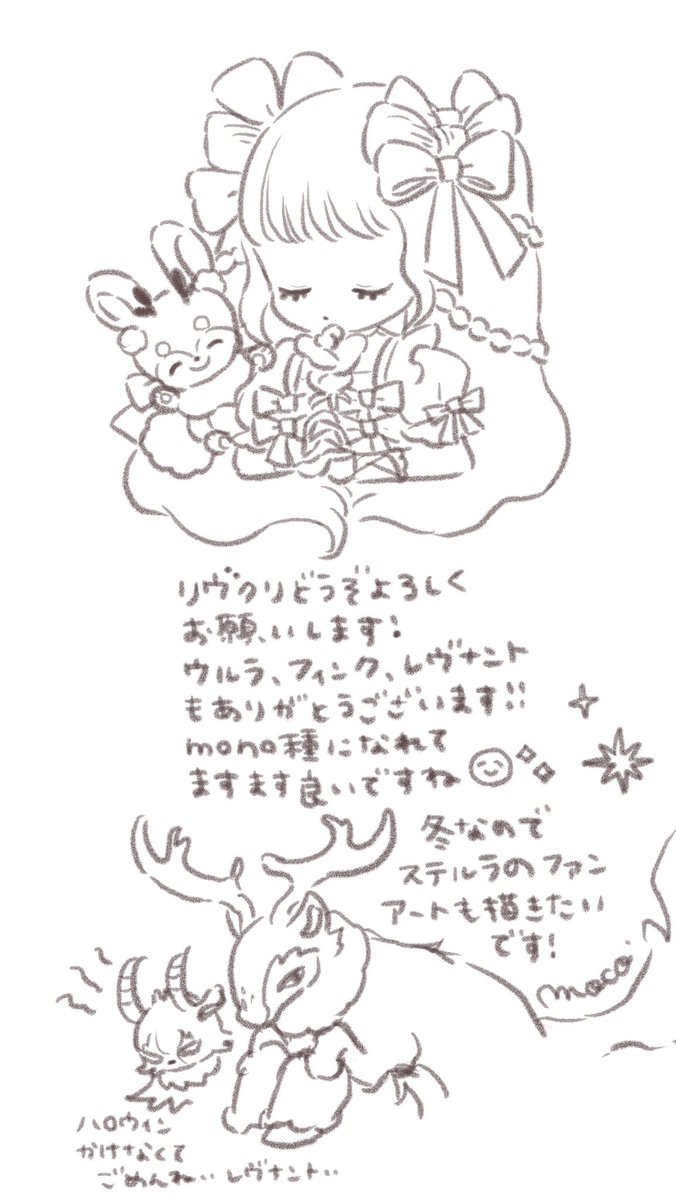 リヴクリどうぞよろしく
お願いします!
ウルラ、フィンク、レヴナント
もありがとうございます!!
mono種になれて
ますます良いですね
冬なので
ステルラのファン
アートも描きたい
です!
moco.
ハロウィン
かけなくて
ごめんね… レヴナント…